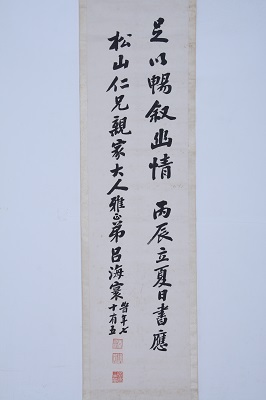 足以暢叙幽情 丙辰立夏日書應
松山仁兄親家大人雅正弟呂海寰時年七
十有五